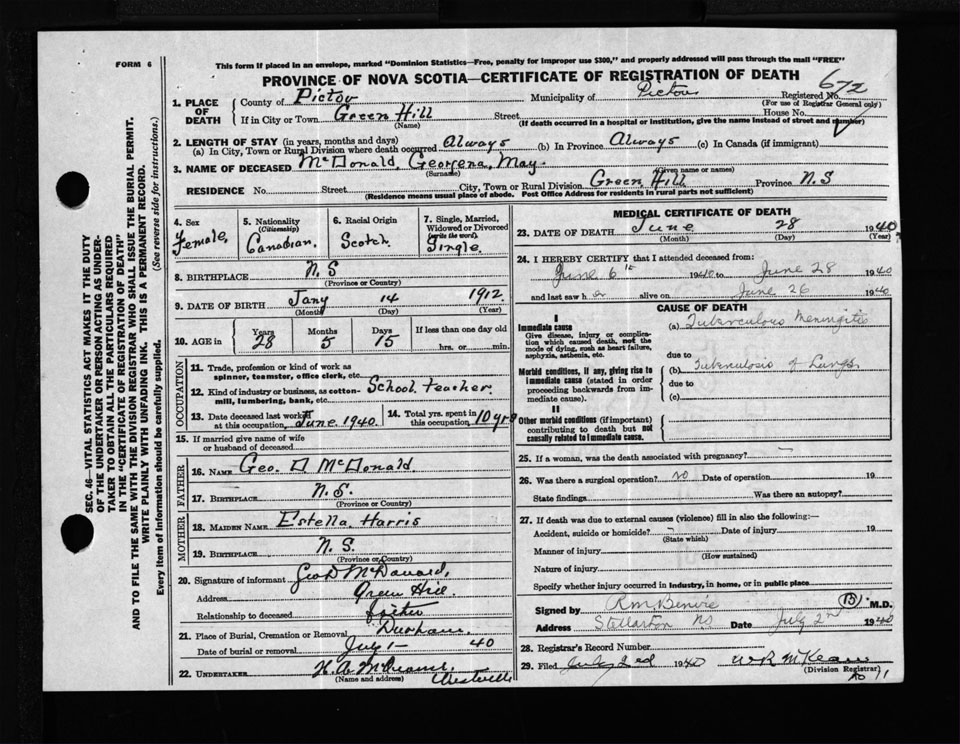 FORM 6
This form if placed in an envelope, marked "Dominion Statistics—Free, penalty for improper use $300," and properly addressed will pass through the mail "FREE"
PROVINCE OF NOVA SCOTIA—CERTIFICATE OF REGISTRATION OF DEATH
672
1. PLACE OF DEATH
County of Pictou Municipality of Pictou Registered No.
(For use of Registrar General only)
If in City or Town Green Hill Street House No.
(Name) (If death occurred in a hospital or institution, give the name instead of street and number)
2. LENGTH OF STAY (in years, months and days)
(a) In City, Town or Rural Division where death occurred Always (b) In Province Always (c) In Canada (if immigrant)
3. NAME OF DECEASED McDonald, Georgena, May.
(Surname) (Given name or names)
RESIDENCE No. Street City, Town or Rural Division Green Hill Province N.S
(Residence means usual place of abode. Post Office Address for residents in rural parts not sufficient)
4. Sex
Female,
5. Nationality
(Citizenship)
Canadian.
6. Racial Origin
Scotch.
7. Single, Married, Widowed or Divorced
(write the word)
Single.
8. BIRTHPLACE N.S
(Province or Country)
9. DATE OF BIRTH Jany 14 1912.
(Month) (Day) (Year)
10. AGE in
Years Months Days If less than one day old
28 5 15 hrs. or min.
OCCUPATION
11. Trade, profession or kind of work as spinner, teamster, office clerk, etc.
12. Kind of industry or business, as cotton-mill, lumbering, bank, etc. School teacher.
13. Date deceased last worked at this occupation June 1940.
14. Total yrs. spent in this occupation 10 yrs
15. If married give name of wife or husband of deceased
FATHER
16. NAME Geo. D McDonald
17. BIRTHPLACE N.S.
(Province or Country)
MOTHER
18. MAIDEN NAME Estella Harris
19. BIRTHPLACE N.S.
(Province or Country)
20. Signature of informant Geo D McDonald,
Address Green Hill
Relationship to deceased father
21. Place of Burial, Cremation or Removal Durham.
Date of burial or removal July 1 - 40
22. UNDERTAKER H. A. Westville
(Name and address)
MEDICAL CERTIFICATE OF DEATH
23. DATE OF DEATH June 28 1940
(Month) (Day) (Year)
24. I HEREBY CERTIFY that I attended deceased from:
June 6th 1940 to June 28 1940
and last saw her alive on June 26 1940
CAUSE OF DEATH
I
Immediate cause
Give disease, injury or complication which caused death, not the mode of dying, such as heart failure, asphyxia, asthenia, etc.
(a) Tuberculous Meningitis
due to
Morbid conditions, if any, giving rise to immediate cause (stated in order proceeding backwards from immediate cause).
(b) Tuberculosis of Lungs
due to
(c)
II
Other morbid conditions (if important) contributing to death but not causally related to immediate cause.
25. If a woman, was the death associated with pregnancy? —
26. Was there a surgical operation? no Date of operation 19
State findings Was there an autopsy?
27. If death was due to external causes (violence) fill in also the following:—
Accident, suicide or homicide? Date of injury 19
(State which)
Manner of injury
(How sustained)
Nature of injury
Specify whether injury occurred in industry, in home, or in public place
Signed by R M Benvie (B) M.D.
Address Stellarton NS Date July 2nd 1940
28. Registrar's Record Number
29. Filed July 2nd 1940 W R McKean
(Division Registrar)
SEC. 46—VITAL STATISTICS ACT MAKES IT THE DUTY
OF THE UNDERTAKER OR PERSON ACTING AS UNDER-
TAKER TO OBTAIN ALL THE PARTICULARS REQUIRED
IN THE "CERTIFICATE OF REGISTRATION OF DEATH"
AND TO FILE THE SAME WITH THE DIVISION REGISTRAR WHO SHALL ISSUE THE BURIAL PERMIT.
WRITE PLAINLY WITH UNFADING INK. THIS IS A PERMANENT RECORD.
Every item of information should be carefully supplied. (See reverse side for instructions.)